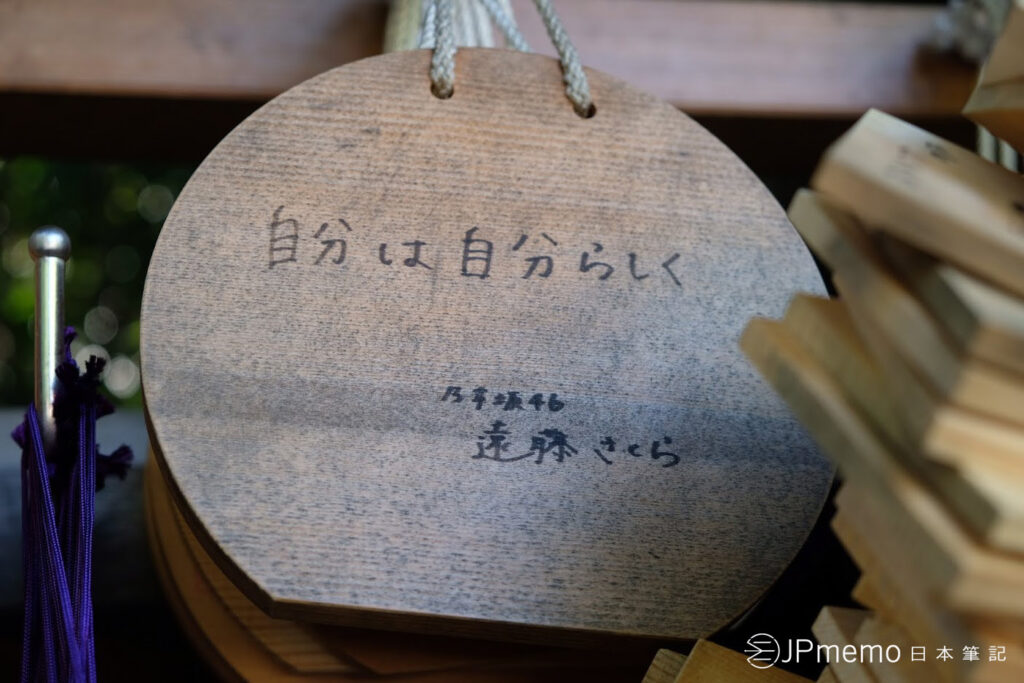 自分は自分らしく
乃木坂46
遠藤さくら
JPmemo 日本筆記